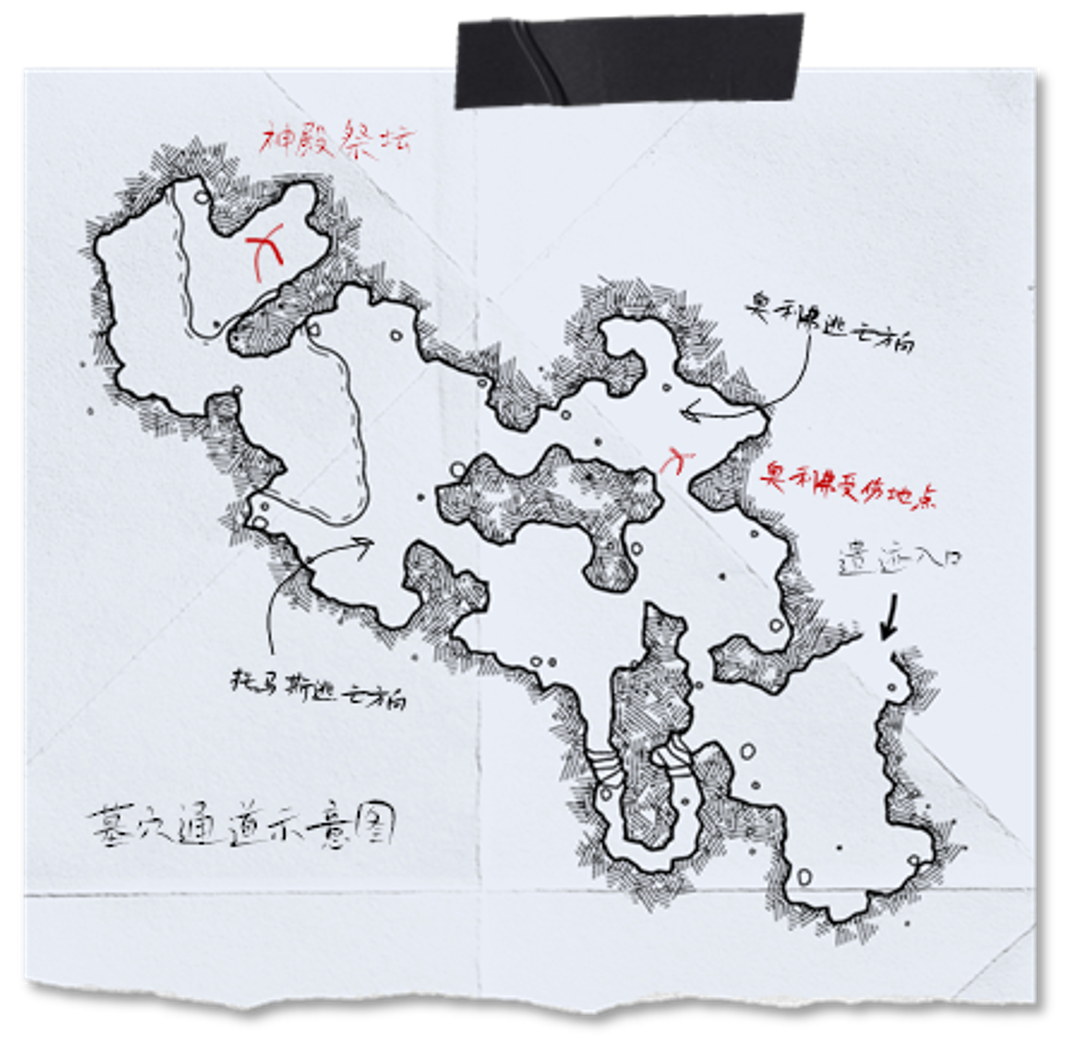 神殿祭坛
奥利弗逃亡方向
奥利弗受伤地点
遗迹入口
托马斯逃亡方向
墓穴通道示意图